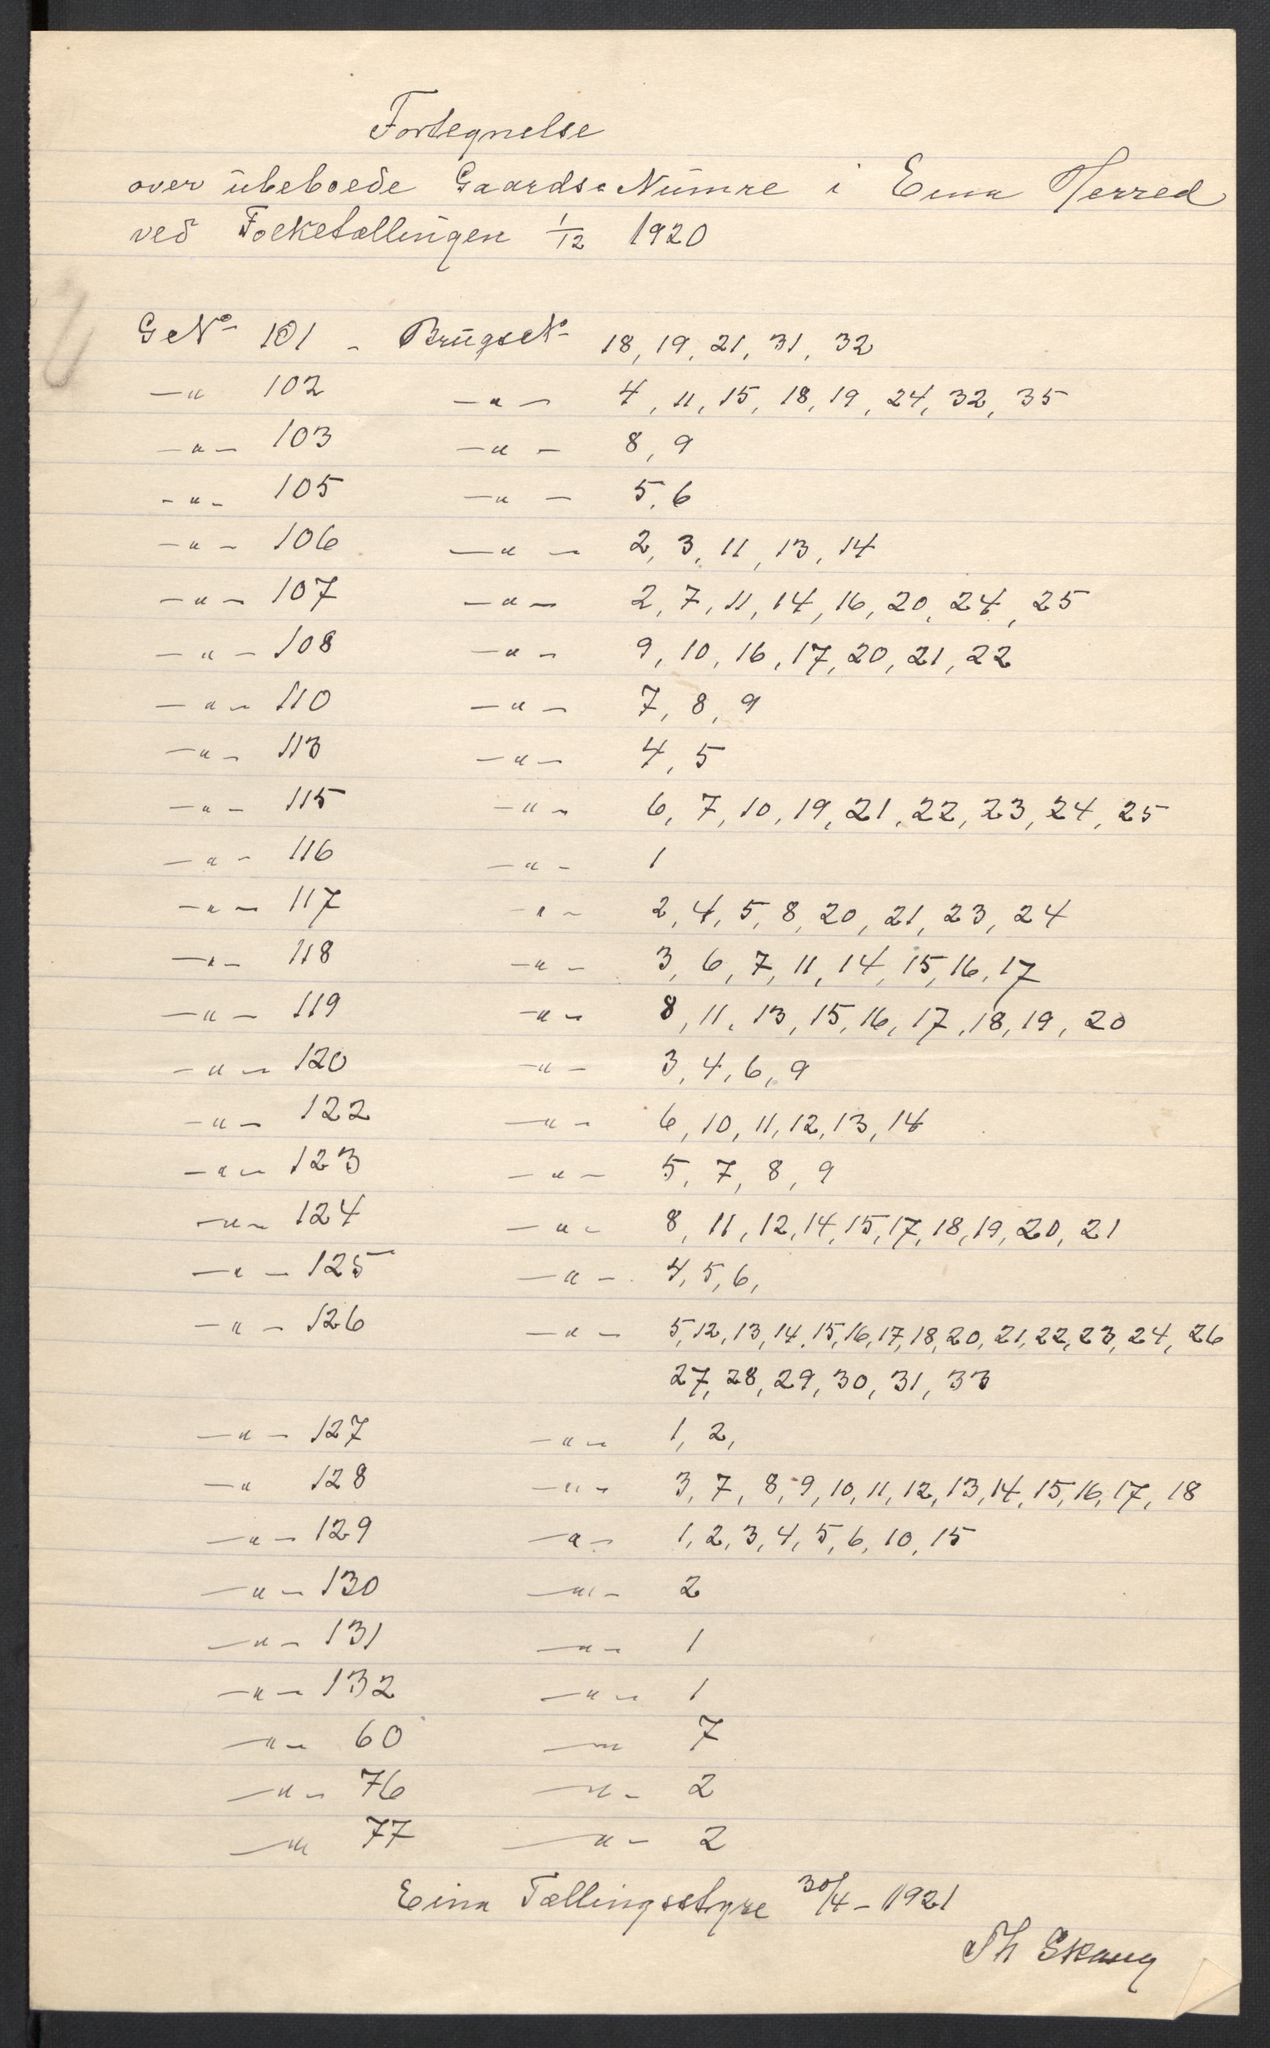 Fortegnelse
over ubeboede Gaards-Numre i Eina Herred
ved Folketællingen 1/12 1920
G.No 101 - Brugs No 18, 19, 21, 31, 32
-"- 102 -"- 4, 11, 15, 18, 19, 24, 32, 35
-"- 103 -"- 8, 9
-"- 105 -"- 5, 6
-"- 106 -"- 2, 3, 11, 13, 14
-"- 107 -"- 2, 7, 11, 14, 16, 20, 24, 25
-"- 108 -"- 9, 10, 16, 17, 20, 21, 22
-"- 110 -"- 7, 8, 9
-"- 113 -"- 4, 5
-"- 115 -"- 6, 7, 10, 19, 21, 22, 23, 24, 25
-"- 116 -"- 1
-"- 117 -"- 2, 4, 5, 8, 20, 21, 23, 24
-"- 118 -"- 3, 6, 7, 11, 14, 15, 16, 17
-"- 119 -"- 8, 11, 13, 15, 16, 17, 18, 19, 20
-"- 120 -"- 3, 4, 6, 9
-"- 122 -"- 6, 10, 11, 12, 13, 14
-"- 123 -"- 5, 7, 8, 9
-"- 124 -"- 8, 11, 12, 14, 15, 17, 18, 19, 20, 21
-"- 125 -"- 4, 5, 6,
-"- 126 -"- 5, 12, 13, 14, 15, 16, 17, 18, 20, 21, 22, 23, 24, 26
27, 28, 29, 30, 31, 33
-"- 127 -"- 1, 2,
-"- 128 -"- 3, 7, 8, 9, 10, 11, 12, 13, 14, 15, 16, 17, 18
-"- 129 -"- 1, 2, 3, 4, 5, 6, 10, 15
-"- 130 -"- 2
-"- 131 -"- 1
-"- 132 -"- 1
-"- 60 -"- 7
-"- 76 -"- 2
-"- 77 -"- 2
Eina Tællingsstyre 30/4 - 1921
Th Skaug